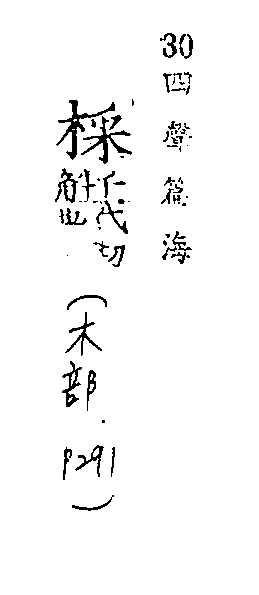 30四聲篇海
棌 代切
(木部.P291)